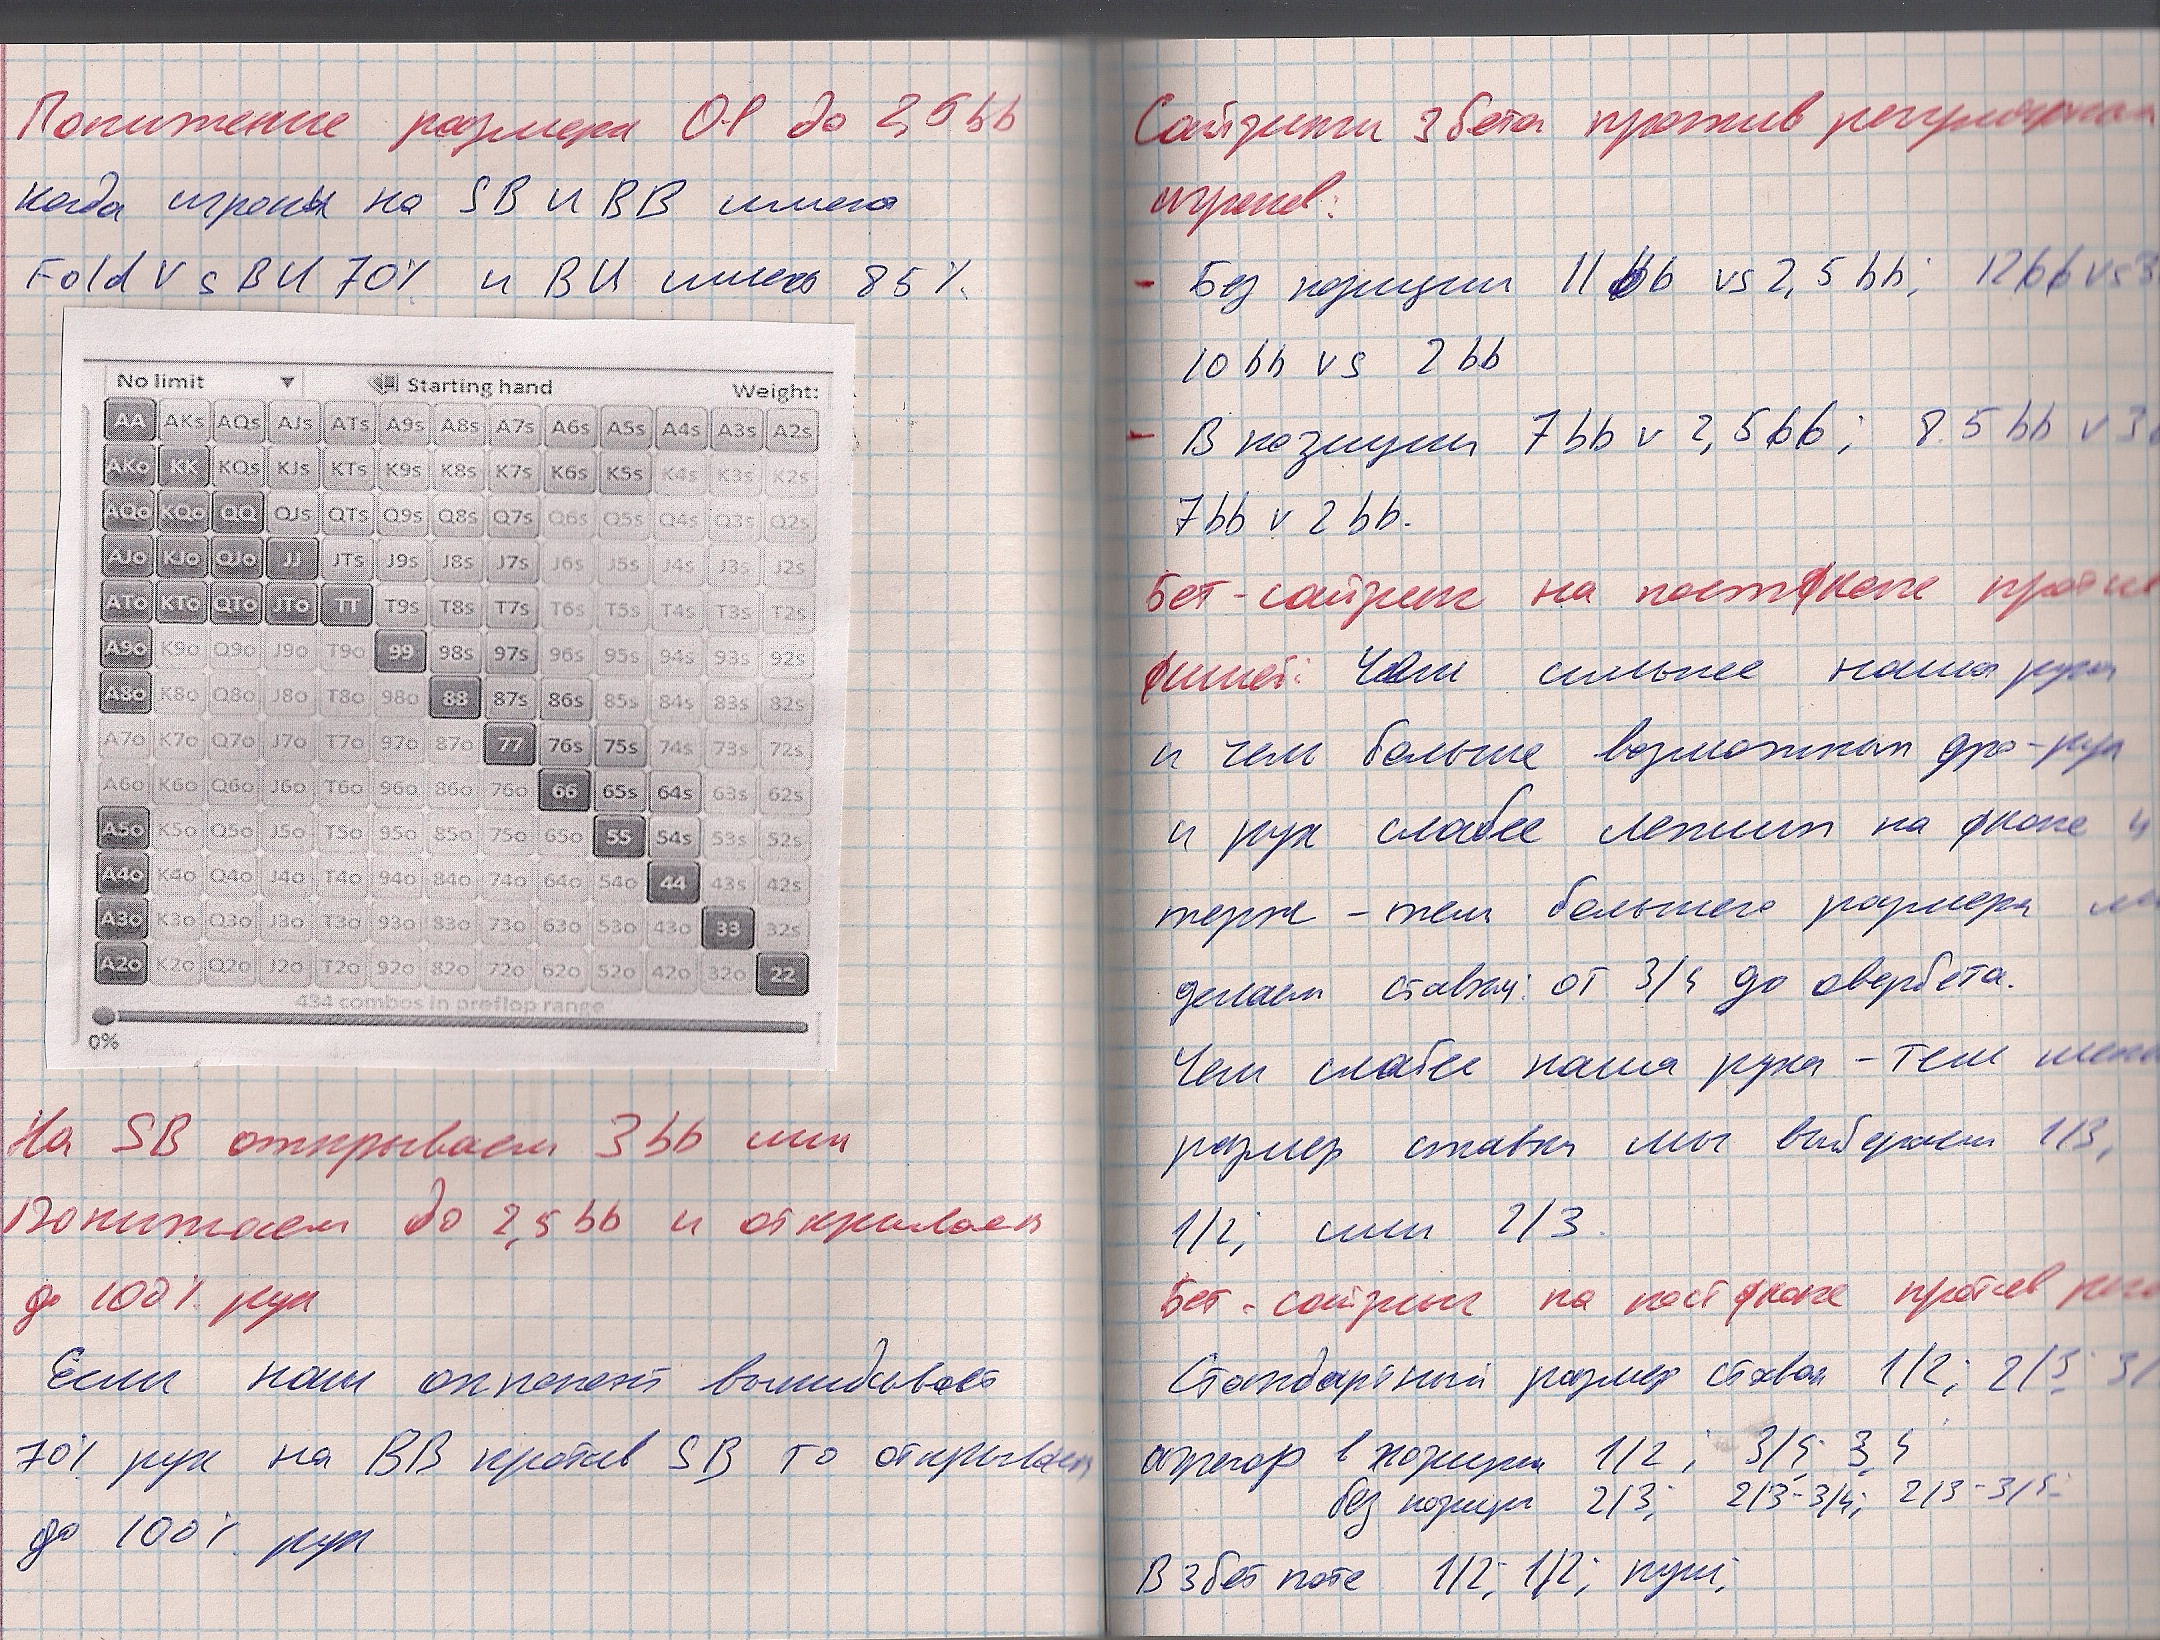 Понижение размера O-R до 2,5 bb
когда игроки на SB и BB имеют
Fold vs BU 70% и BU имеет 85%.
No limit ▼ Starting hand Weight:
AA AKs AQs AJs ATs A9s A8s A7s A6s A5s A4s A3s A2s
AKo KK KQs KJs KTs K9s K8s K7s K6s K5s K4s K3s K2s
AQo KQo QQ QJs QTs Q9s Q8s Q7s Q6s Q5s Q4s Q3s Q2s
AJo KJo QJo JJ JTs J9s J8s J7s J6s J5s J4s J3s J2s
ATo KTo QTo JTo TT T9s T8s T7s T6s T5s T4s T3s T2s
A9o K9o Q9o J9o T9o 99 98s 97s 96s 95s 94s 93s 92s
A8o K8o Q8o J8o T8o 98o 88 87s 86s 85s 84s 83s 82s
A7o K7o Q7o J7o T7o 97o 87o 77 76s 75s 74s 73s 72s
A6o K6o Q6o J6o T6o 96o 86o 76o 66 65s 64s 63s 62s
A5o K5o Q5o J5o T5o 95o 85o 75o 65o 55 54s 53s 52s
A4o K4o Q4o J4o T4o 94o 84o 74o 64o 54o 44 43s 42s
A3o K3o Q3o J3o T3o 93o 83o 73o 63o 53o 43o 33 32s
A2o K2o Q2o J2o T2o 92o 82o 72o 62o 52o 42o 32o 22
434 combos in preflop range
0%
На SB открываем 3 bb или
Понижаем до 2,5 bb и открываем
до 100% рук
Если наш оппонент выкидывает
70% рук на BB против SB то открываем
до 100% рук
Сайзинги 3бета против регулярных
игроков:
- Без позиции 11 bb vs 2,5 bb; 12bb vs 3
10 bb vs 2 bb
- В позиции 7 bb v 2,5 bb; 8.5 bb v 3
7 bb v 2 bb.
Бет-сайзинг на постфлопе против
фишей: Чем сильнее наша рука
и чем больше возможных дро-рук
и рук слабее лежит на флопе и
терне - тем большего размера мы
делаем ставки: от 3/4 до овербета.
Чем слабее наша рука - тем
размер ставки мы выбираем 1/3,
1/2; или 2/3.
Бет-сайзинг на постфлопе против
Стандартный размер ставки 1/2; 2/3;
агрегор в позиции 1/2; 3/4; 3 4
без позиции 2/3; 2/3-3/4; 2/3-3/4;
В 3бет поте 1/2; 1/2; пуш;